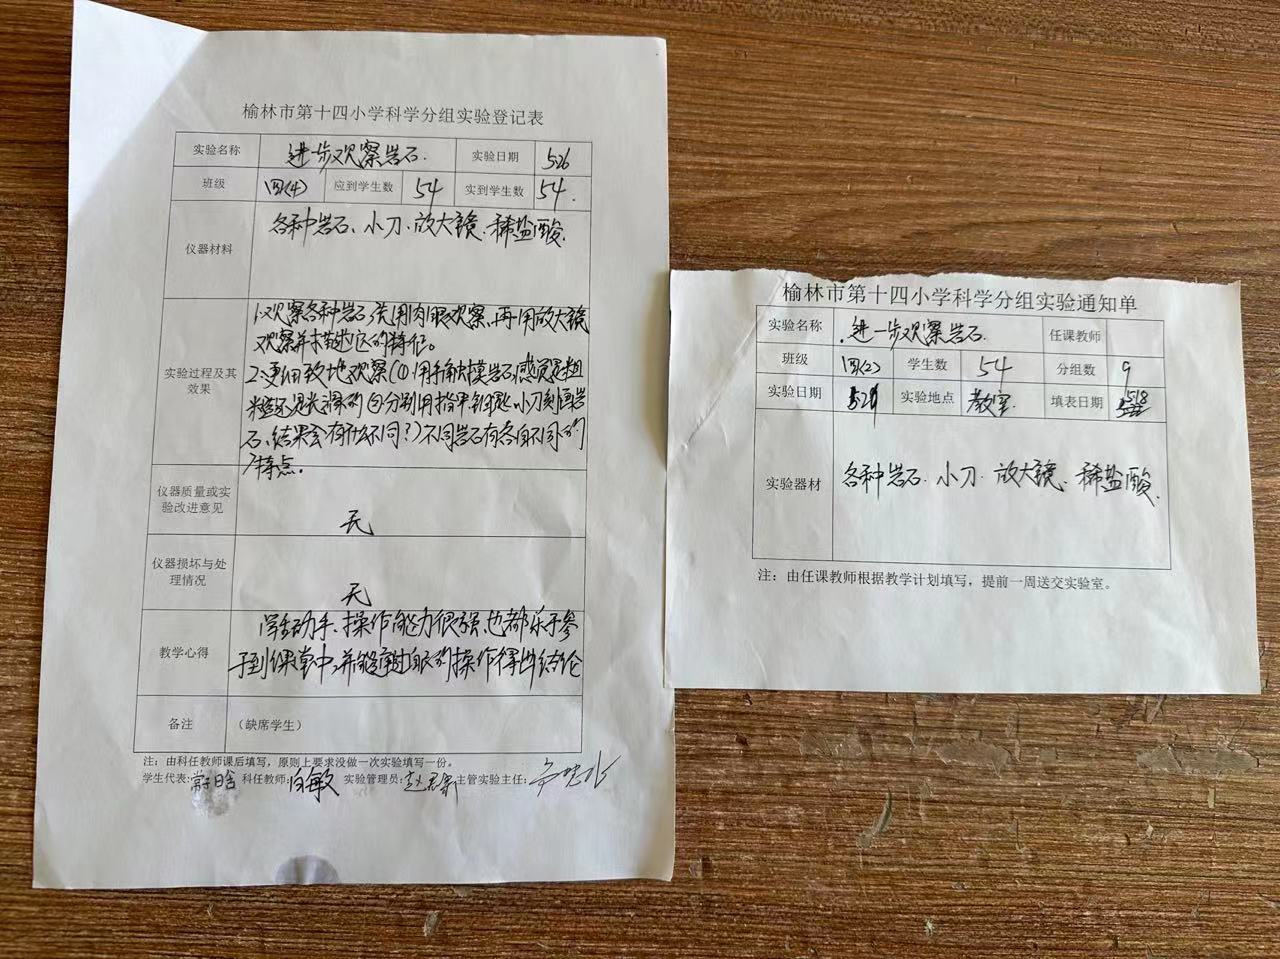 榆林市第十四小学科学分组实验登记表
实验名称 进步观察岩石. 实验日期 526
班级 四(4) 应到学生数 54 实到学生数 54.
仪器材料 各种岩石、小刀、放大镜、稀盐酸.
实验过程及其效果
1.观察各种岩石,先用肉眼观察,再用放大镜
观察并描述它的特征。
2.更细致地观察(①用手触摸岩石,感觉是粗
糙还是光滑的②分别用指甲钥匙、小刀刻画岩
石、结果会有什么不同?)不同岩石有各自不同的
特点。
仪器质量或实验改进意见 无
仪器损坏与处理情况 无
教学心得
学生动手、操作能力很强,也都乐于参
于到课堂中,并能通过自己的操作得出结论
备注 (缺席学生)
注:由科任教师课后填写,原则上要求没做一次实验填写一份。
学生代表: 科任教师:白敏 实验管理员: 主管实验主任:
榆林市第十四小学科学分组实验通知单
实验名称 进一步观察岩石. 任课教师
班级 四(2) 学生数 54 分组数 9
实验日期 实验地点 教室 填表日期 518
实验器材 各种岩石、小刀、放大镜、稀盐酸.
注:由任课教师根据教学计划填写,提前一周送交实验室。